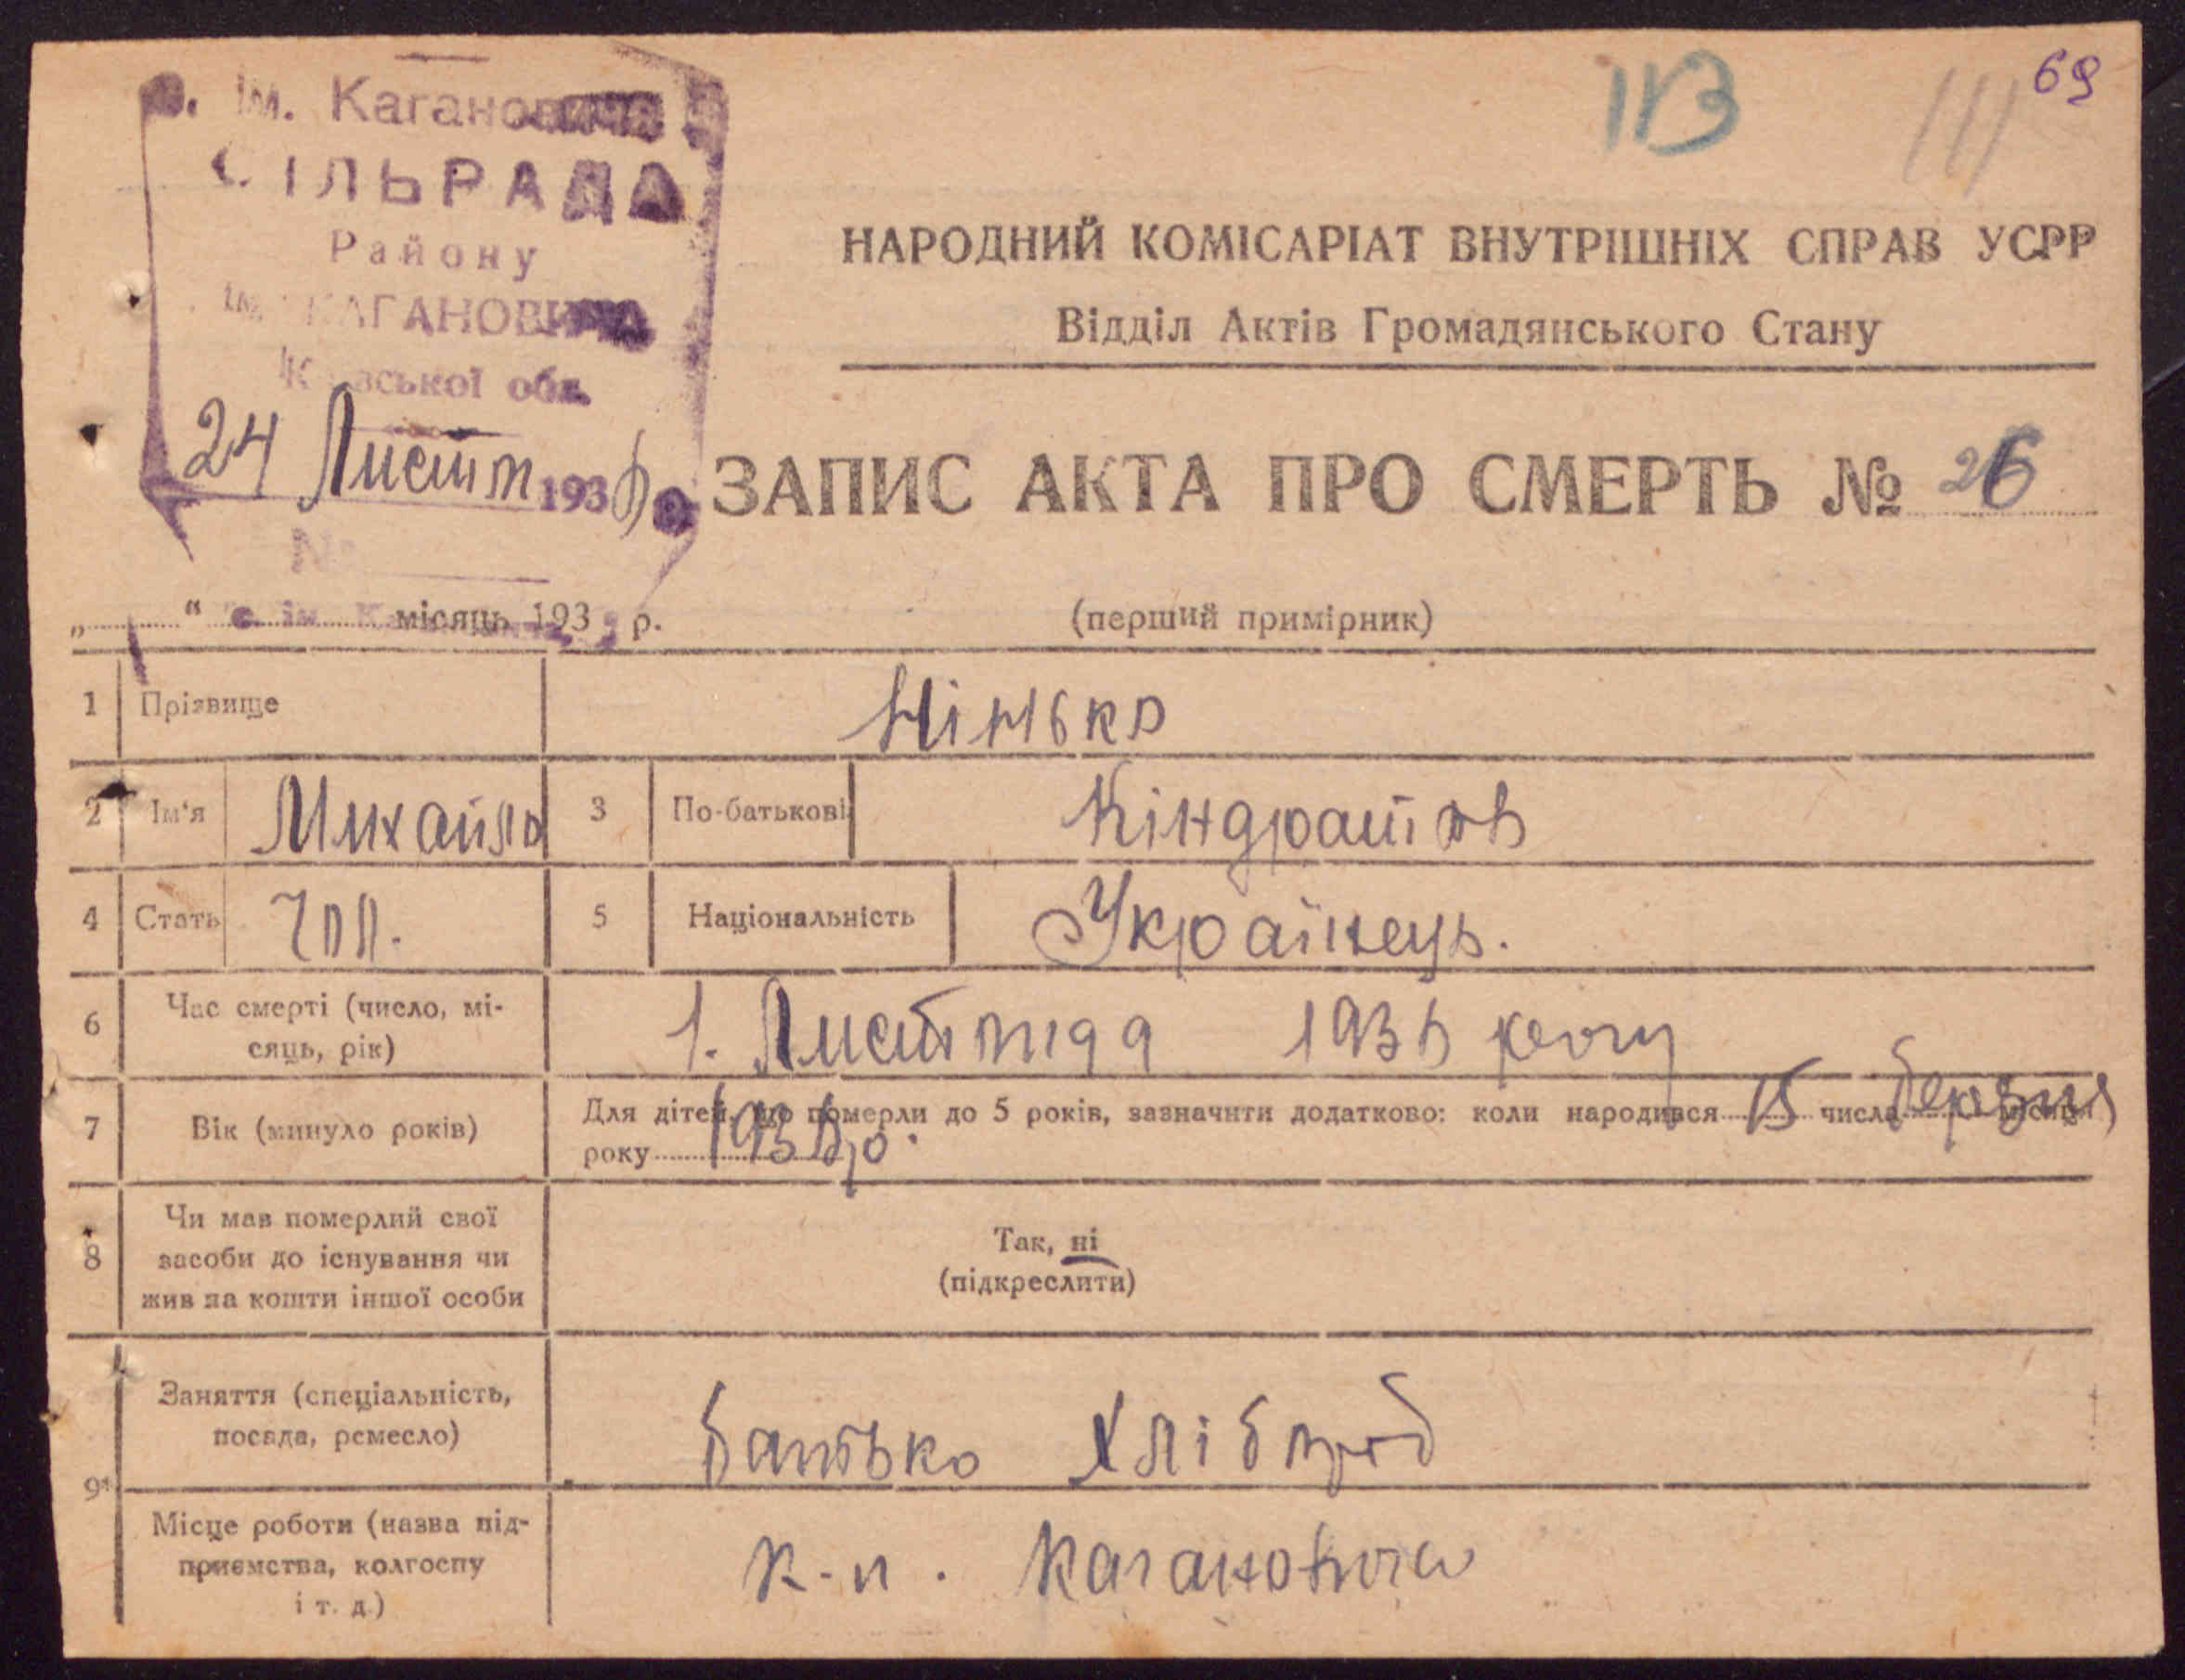 69
113
111
с. ім. Кагановича
СІЛЬРАДА
Району
ім. КАГАНОВИЧА
Київської обл.
24 Листоп 193
№
НАРОДНИЙ КОМІСАРІАТ ВНУТРІШНІХ СПРАВ УСРР
Відділ Актів Громадянського Стану
ЗАПИС АКТА ПРО СМЕРТЬ № 26
„ “ місяць 193 р.
(перший примірник)
1 Прізвище Нінько
2 Ім'я Михайло 3 По-батькові Кіндратов
4 Стать чол. 5 Національність Українець.
6 Час смерті (число, мі-
сяць, рік) 1. Листопада 193 року
7 Вік (минуло років) Для дітей, що померли до 5 років, зазначити додатково: коли народився 15 числа березня місяця
року 193 р.
8 Чи мав померлий свої
засоби до існування чи
жив на кошти іншої особи
Так, ні
(підкреслити)
9 Заняття (спеціальність,
посада, ремесло) Батько Хлібороб
Місце роботи (назва під-
приємства, колгоспу
і т. д.) Кагановича